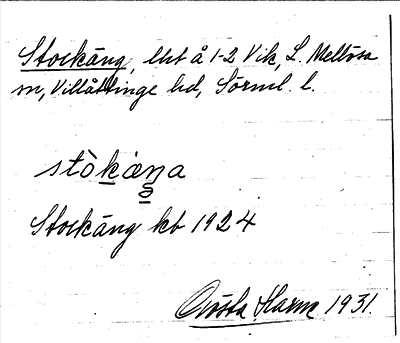 Stockäng, lht å 1-2 Vik, L. Mellösa
sn, Villåttinge hd, Sörml. l.
stòkæ̀ŋa
Stockäng kb 1924
Gösta Harne 1931.